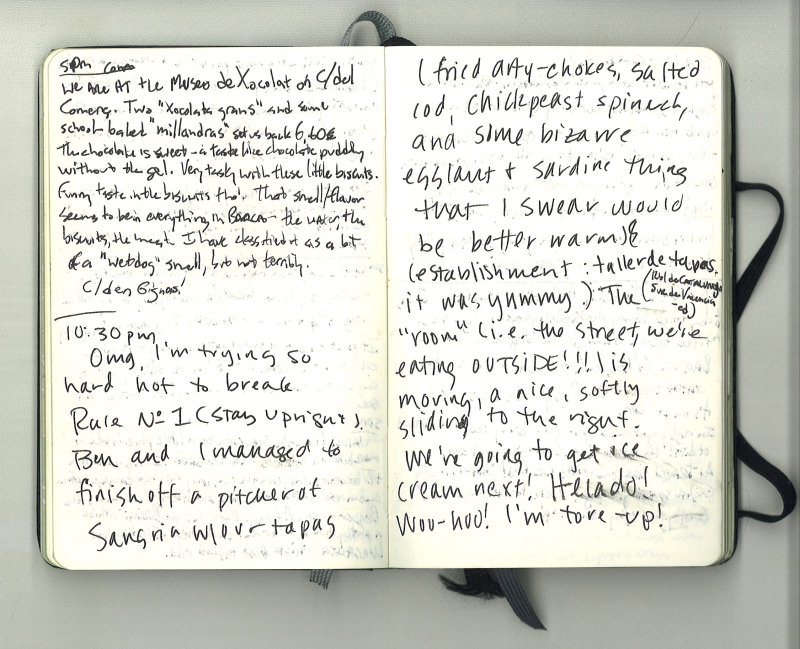 5pm
We are at the Museo de Xocolat on C/del
Comerç. Two "Xocolata grans" and some
school baked "millandras" set us back 6,60€
The chocolate is sweet - a taste like chocolate pudding
without the gel. Very tasty with these little biscuits.
Funny taste in the biscuits tho'. That smell/flavor
seems to be in everything in Barca - the water, the
biscuits, the meat. I have classified it as a bit
of a "wetdog" smell, but not terribly.
C/den Gignas!
10:30pm
Omg, I'm trying so
hard not to break
Rule Nº 1 (stay upright).
Ben and I managed to
finish off a pitcher of
Sangria w/our tapas
(fried arty-chokes, salted
cod, chickpeast spinach,
and some bizarre
egglant + sardine thing
that I swear would
be better warm)
(establishment: taller de tapas.
it was yummy.) The (Rbl de Catalunya
"room" (i.e. the street, we're
eating OUTSIDE!!!) is
moving, a nice, softly
sliding to the right.
We're going to get ice
cream next! Helado!
Woo-hoo! I'm tore-up!